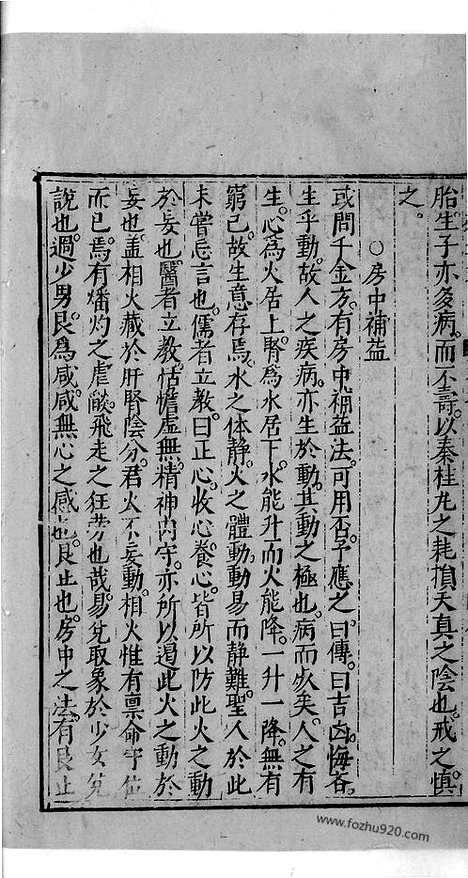 胎生子亦多病而不壽以秦桂丸之耗損天真之陰也戒之慎
之
○房中補益
或問千金方有房中補益法可用否予應之曰傳曰吉凶悔吝
生乎動故人之疾病亦生於動其動之極也病而死矣人之有
生心為火居上腎為水居下水能升而火能降一升一降無有
窮已故生意存焉水之体静火之體動動易而静難聖人於此
未嘗忘言也儒者立教曰正心收心養心皆所以防此火之動
於妄也醫者立教恬憺虛無精神內守亦所以遏此火之動於
妄也盖相火藏於肝腎陰分君火不妄動相火惟有禀命守位
而已焉有燔灼之虐燄飛走之狂勢也哉易兌取象於少女兌
說也遇少男艮為咸咸無心之感也艮止也房中之法有艮止
www.fozhu920.com